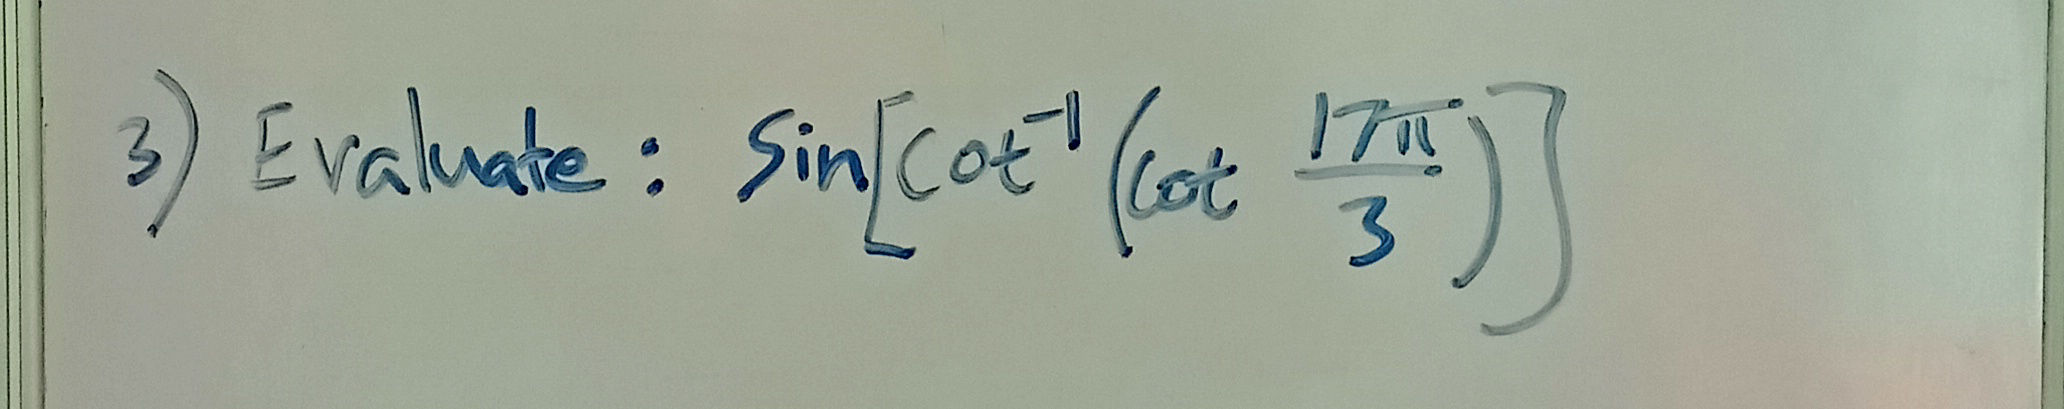 3) Evaluate: Sin[Cot⁻¹(Cot 17π/3)]